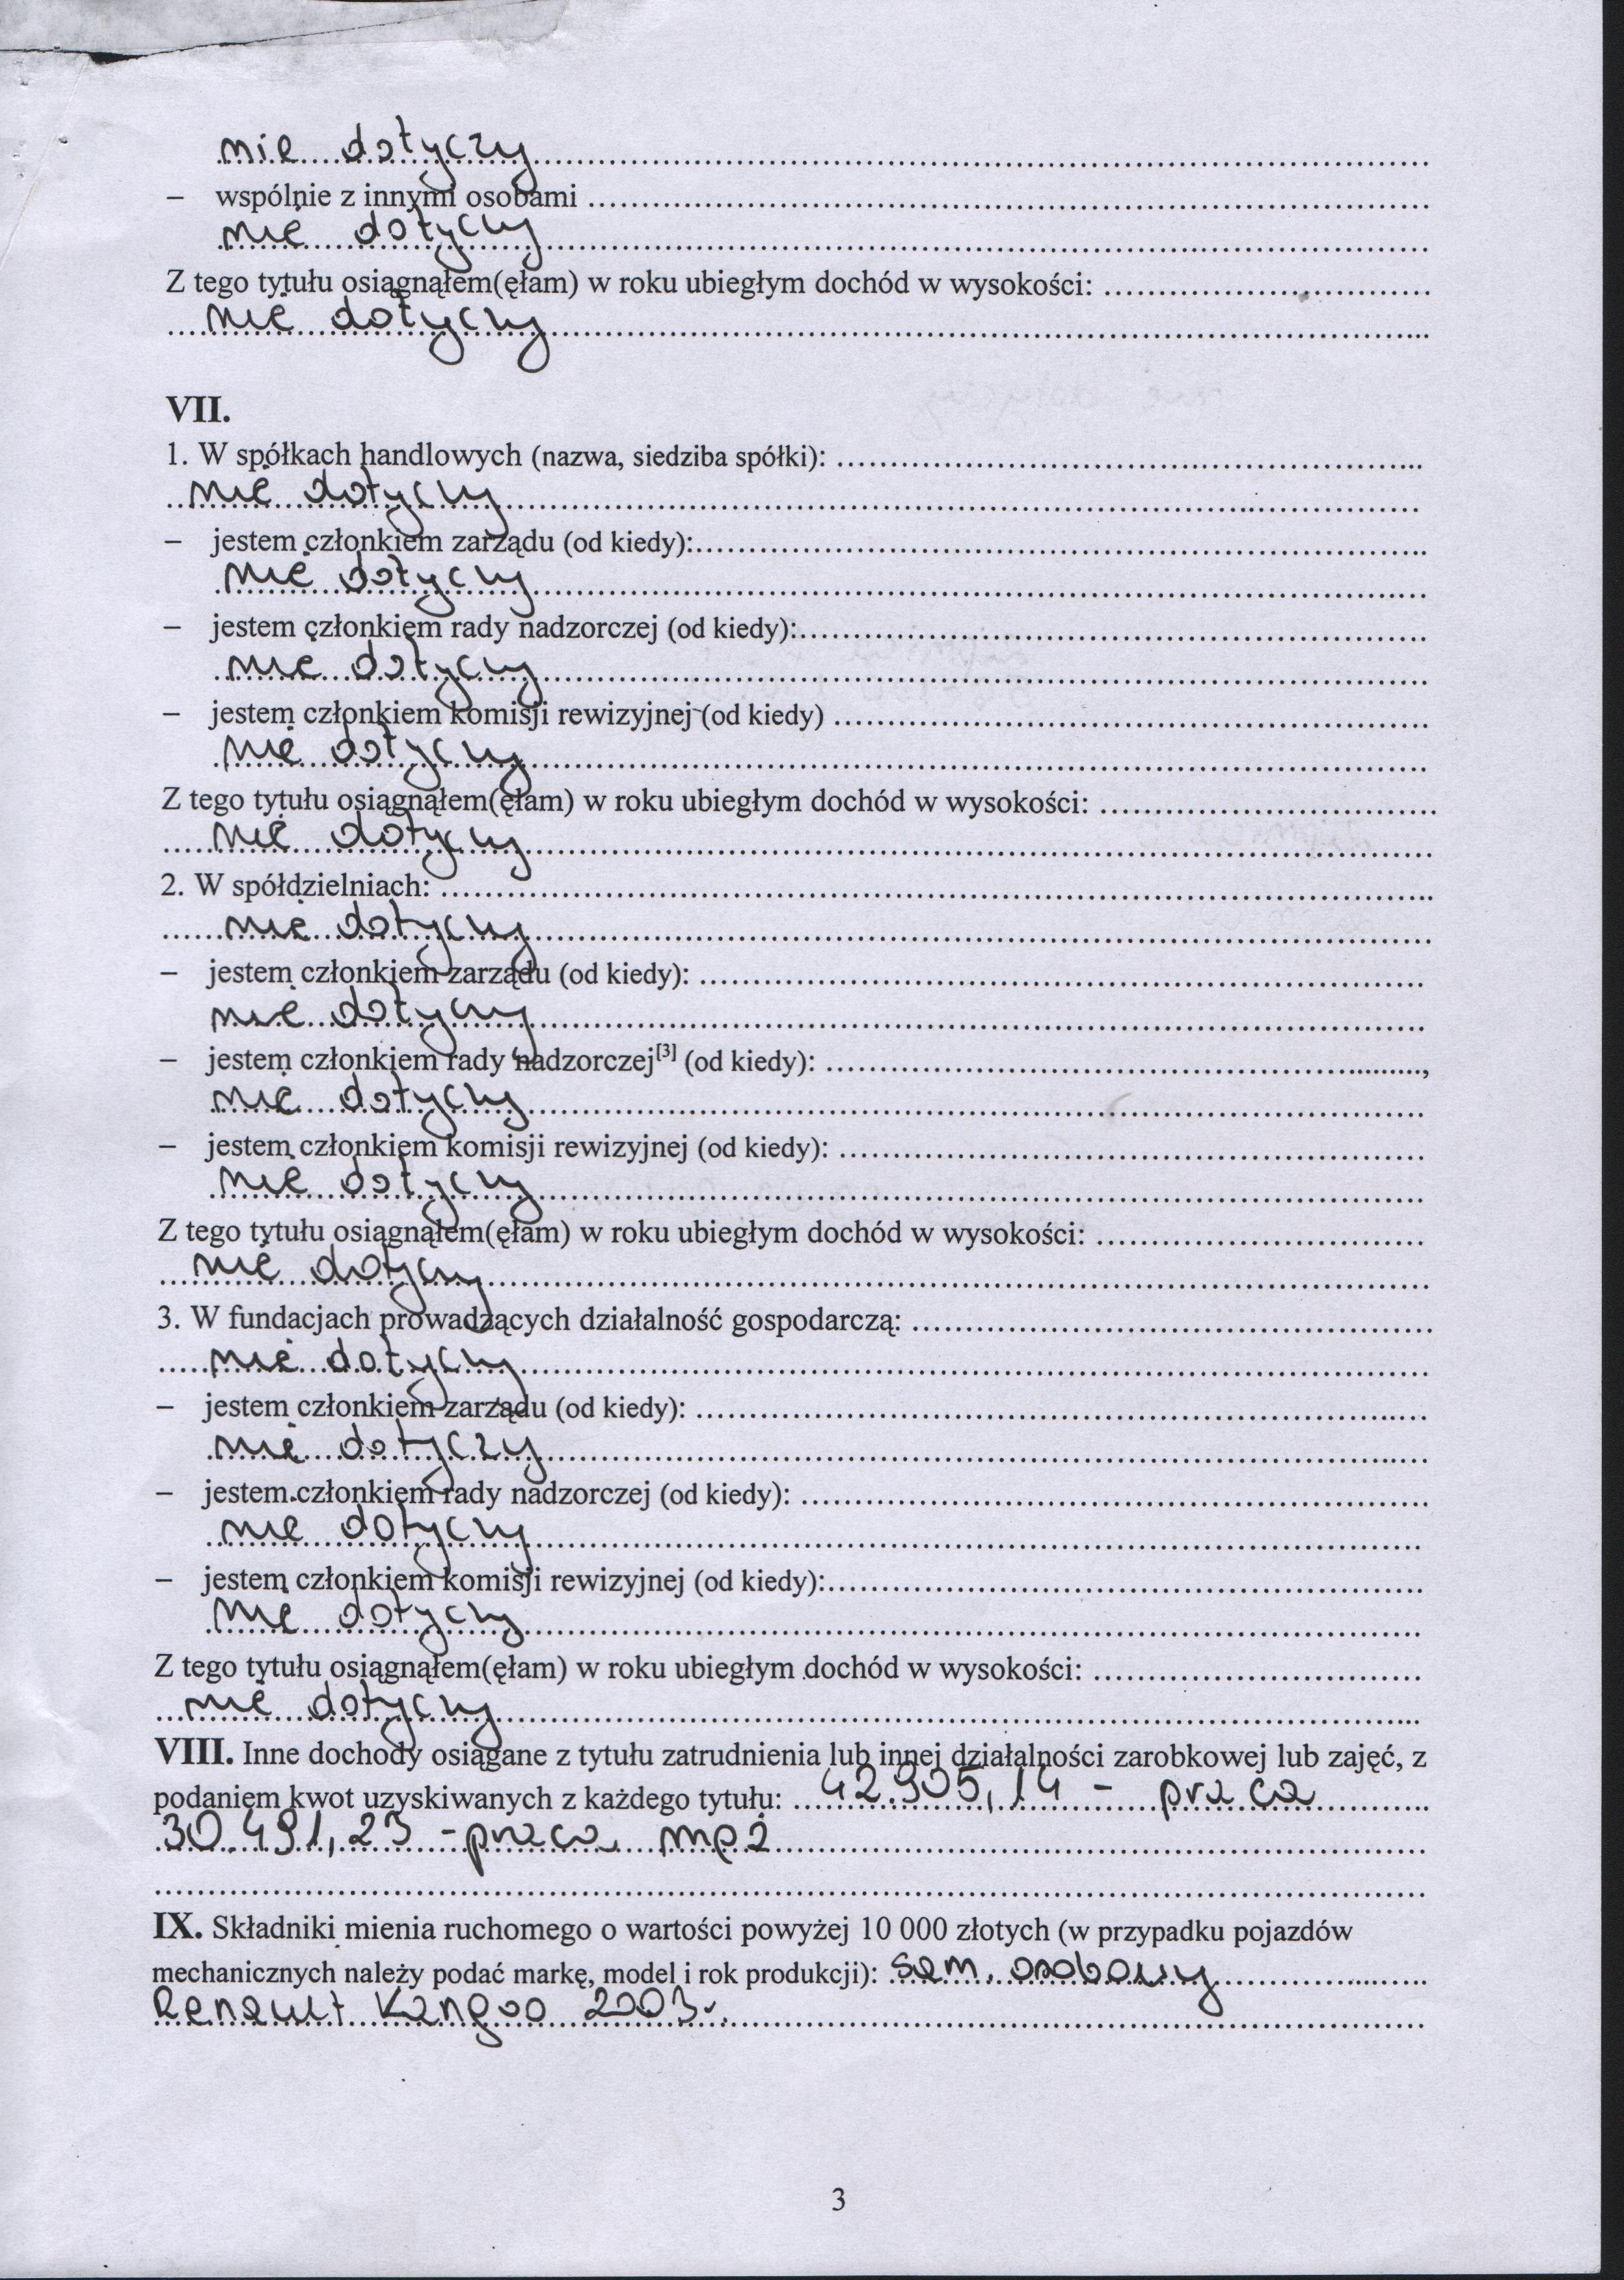 nie dotyczy
– wspólnie z innymi osobami
nie dotyczy
Z tego tytułu osiągnąłem(ęłam) w roku ubiegłym dochód w wysokości:
nie dotyczy
VII.
1. W spółkach handlowych (nazwa, siedziba spółki):
nie dotyczy
– jestem członkiem zarządu (od kiedy):
nie dotyczy
– jestem członkiem rady nadzorczej (od kiedy):
nie dotyczy
– jestem członkiem komisji rewizyjnej (od kiedy)
nie dotyczy
Z tego tytułu osiągnąłem(ęłam) w roku ubiegłym dochód w wysokości:
nie dotyczy
2. W spółdzielniach:
nie dotyczy
– jestem członkiem zarządu (od kiedy):
nie dotyczy
– jestem członkiem rady nadzorczej[3] (od kiedy): ,
nie dotyczy
– jestem członkiem komisji rewizyjnej (od kiedy):
nie dotyczy
Z tego tytułu osiągnąłem(ęłam) w roku ubiegłym dochód w wysokości:
nie dotyczy
3. W fundacjach prowadzących działalność gospodarczą:
nie dotyczy
– jestem członkiem zarządu (od kiedy):
nie dotyczy
– jestem członkiem rady nadzorczej (od kiedy):
nie dotyczy
– jestem członkiem komisji rewizyjnej (od kiedy):
nie dotyczy
Z tego tytułu osiągnąłem(ęłam) w roku ubiegłym dochód w wysokości:
nie dotyczy
VIII. Inne dochody osiągane z tytułu zatrudnienia lub innej działalności zarobkowej lub zajęć, z
podaniem kwot uzyskiwanych z każdego tytułu: 42.905,14 - praca
30.491,23 - praca mąż
IX. Składniki mienia ruchomego o wartości powyżej 10 000 złotych (w przypadku pojazdów
mechanicznych należy podać markę, model i rok produkcji): sam. osobowy
Renault Kangoo 2003r.
3